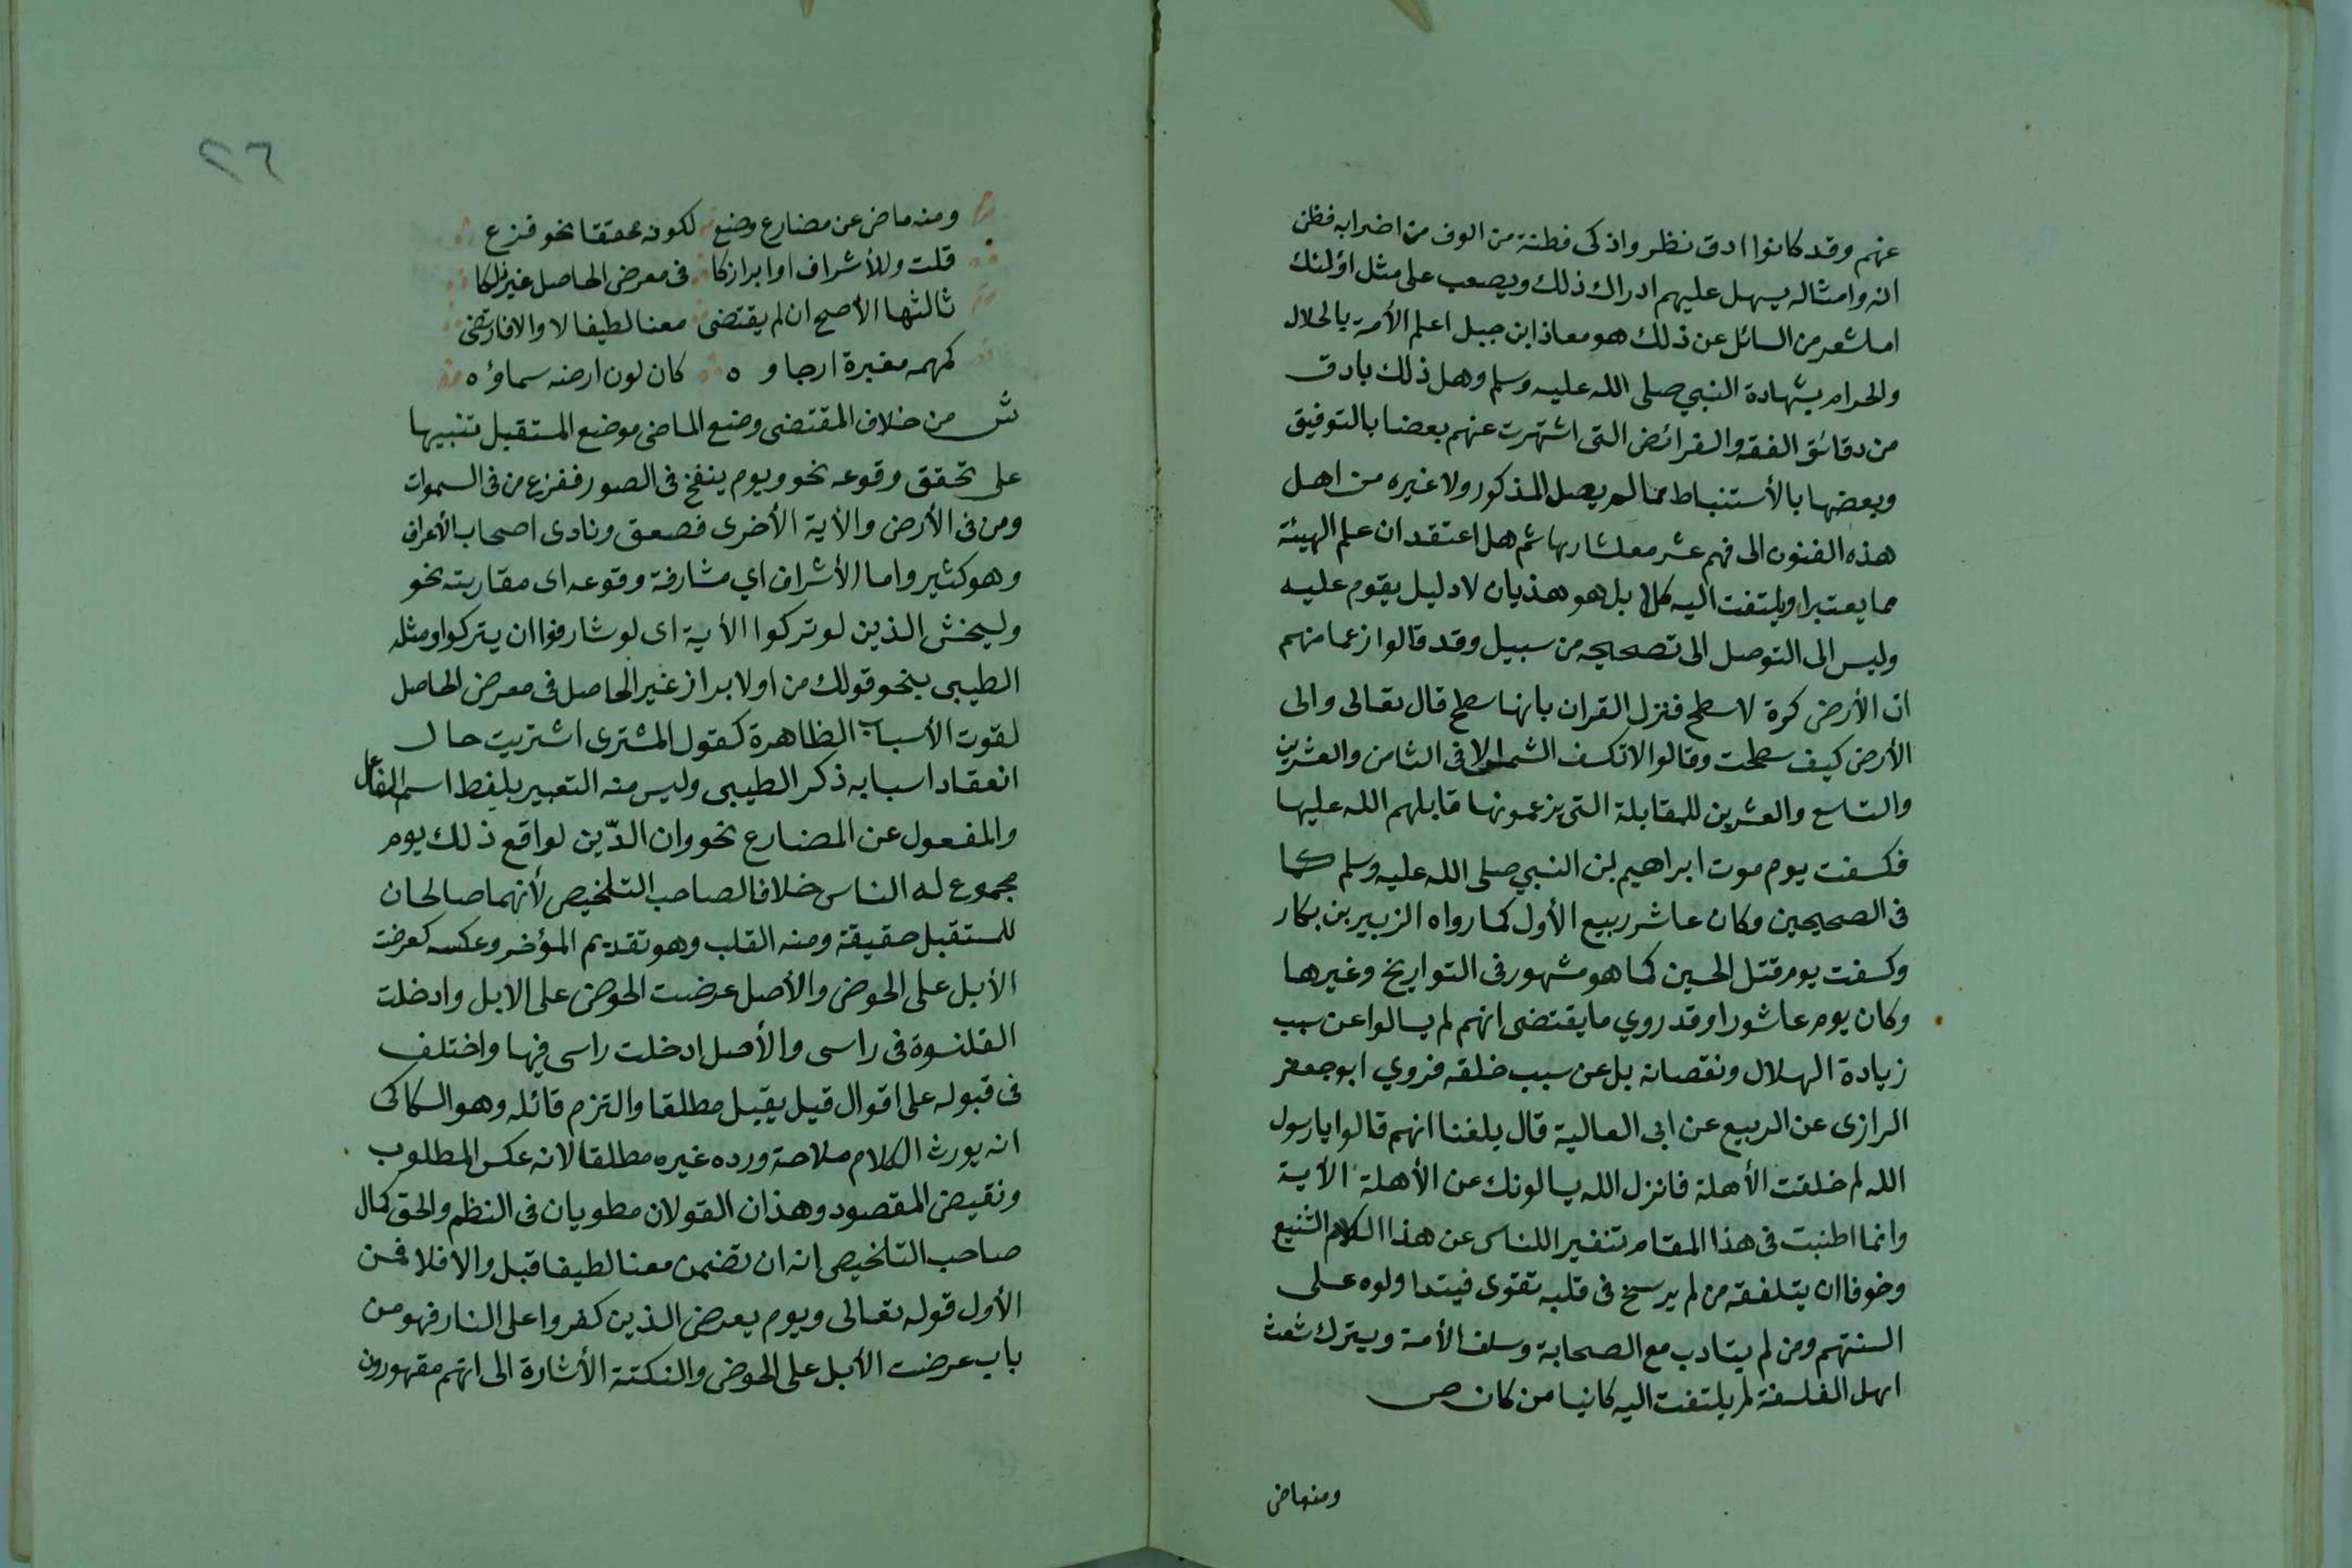 عنهم وقد كانوا ادق نظر واذكى فطنة من الوف من اضرابه فظن
انه وامثاله يسهل عليهم ادراك ذلك ويصعب على مثل اؤلئك
اما شعر من السائل عن ذلك هو معاذ ابن جبل اعلم الأمة بالحلال
والحرام بشهادة النبي صلى الله عليه وسلم وهل ذلك بادق
من دقائق الفقه والفرائض التى اشتهرت عنهم بعضا بالتوفيق
وبعضها بالأستنباط مما لم يصل المذكور ولا غيره من اهل
هذه الفنون الى فهم عشر معشارها ثم هل اعتقد ان علم الهيئة
مما يعتبر او يلتفت اليه كلا بل هو هذيان لا دليل يقوم عليه
وليس الى التوصل الى تصحيحه من سبيل وقد قالوا زعما منهم
ان الأرض كرة لا سطح فنزل القران بانها سطح قال تعالى والى
الأرض كيف سطحت وقالوا لا تكسف الشمس الا فى الثامن والعشرين
والتاسع والعشرين للمقابلة التى يزعمونها قابلهم الله عليها
فكسفت يوم موت ابراهيم بن النبي صلى الله عليه وسلم كما
فى الصحيحين وكان عاشر ربيع الأول كما رواه الزبير بن بكار
وكسفت يوم قتل الحسين كما هو مشهور فى التواريخ وغيرها
وكان يوم عاشورا وقد روي ما يقتضى انهم لم يسالوا عن سبب
زيادة الهلال ونقصانه بل عن سبب خلقه فروي ابو جعفر
الرازى عن الربيع عن ابى العالية قال بلغنا انهم قالوا يا رسول
الله لم خلقت الأهلة فانزل الله يسالونك عن الأهلة الأية
وانما اطنبت فى هذا المقام تنفير اللناس عن هذا الكلام الشنيع
وخوفا ان يتلقفه من لم يرسخ فى قلبه تقوى فيتدا ولوه على
السنتهم ومن لم يتادب مع الصحابة وسلف الأمة ويترك شعث
اهل الفلسفة لم يلتفت اليه كائنا من كان ص
ومنه ماض
٢٦
ومنه ماض عن مضارع وضع لكونه محققا نحو فزع
قلت وللأشراف او ابراز كا فى معرض الحاصل غير ذلكا
ثالثها الأصح ان لم يقتضى معنا لطيفا لا والا فارتضى
كمهمه مغبرة ارجاوه كان لون ارضه سماؤه
ش من خلاف المقتضى وضع الماضى موضع المستقبل تنبيها
على تحقق وقوعه نحو ويوم ينفخ فى الصور ففزع من فى السموات
ومن فى الأرض والأية الأخرى فصعق ونادى اصحاب الأعراف
وهو كثير واما الأشراف اي مشارفة وقوعه اى مقاربته نحو
وليخش الذين لو تركوا الأية اى لو شارفوا ان يتركوا ومثله
الطيبى بنحو قولك من اولا براز غير الحاصل فى معرض الحاصل
لقوت الأسباب الظاهرة كقول المشترى اشتريت حال
انعقاد اسبابه ذكر الطيبى وليس منه التعبير بلفظ اسم الفاعل
والمفعول عن المضارع نحو وان الدّين لواقع ذلك يوم
مجموع له الناس خلافا لصاحب التلخيص لأنهما صالحان
للمستقبل حقيقة ومنه القلب وهو تقديم المؤخر وعكسه كعرضت
الأبل على الحوض والأصل عرضت الحوض على الابل وادخلت
القلنسوة فى راسى والأصل ادخلت راسى فيها واختلف
فى قبوله على اقوال قيل يقبل مطلقا والتزم قائله وهو السكاكى
انه يورث الكلام ملاحة ورده غيره مطلقا لانه عكس المطلوب
ونقيض المقصود وهذان القولان مطويان فى النظم والحق كمال
صاحب التلخيص انه ان تضمن معنا لطيفا قبل والا فلا فمن
الأول قوله تعالى ويوم يعرض الذين كفروا على النار فهو من
باب عرضت الأبل على الحوض والنكتة الأشارة الى انهم مقهورون